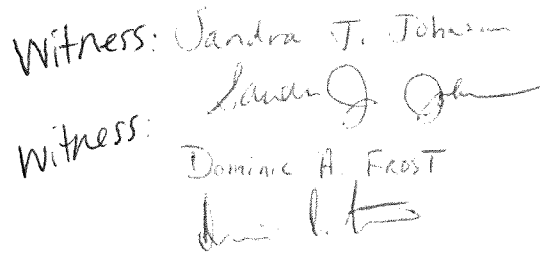 Witness: Sandra J. Johnson
Sandra J. Johnson
Witness:
Dominic A. Frost